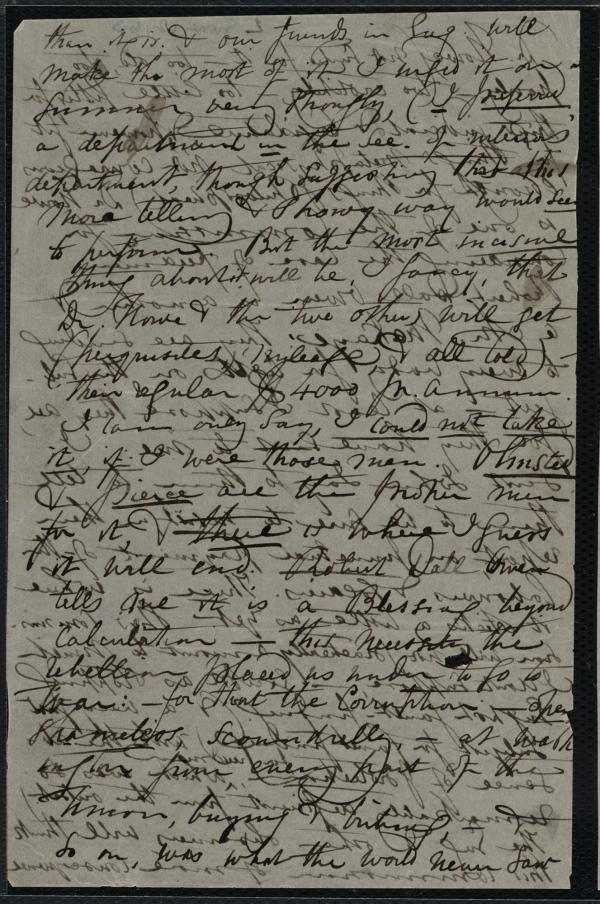 than it is. & our friends in Eng. will
make the most of it. I urged it on
Sumner very strongly, (I preferred
a department in the Sec. of Interior's
department, though suggesting that this
more telling & showy way would seem
to perform. But the most
thing about it will be, I fancy, that
Dr. Howe & the two others will get
perquisites, mileage, & all told,
their regular $ 4000 pr. annum.
I can only say, I could not take
it, if I were those men. Olmsted
& Pierce are the proper men
for it, & there is where I guess
it will end. Robert Dale Owen
tells me it is a Blessing beyond
calculation — this necessity the
rebellion placed us under to go to
war: — for that the Corruption — open
shameless, scoundrelly, — at Wash
ington from every part of the
Union, buying & bribing, &
so on, was what the world never saw